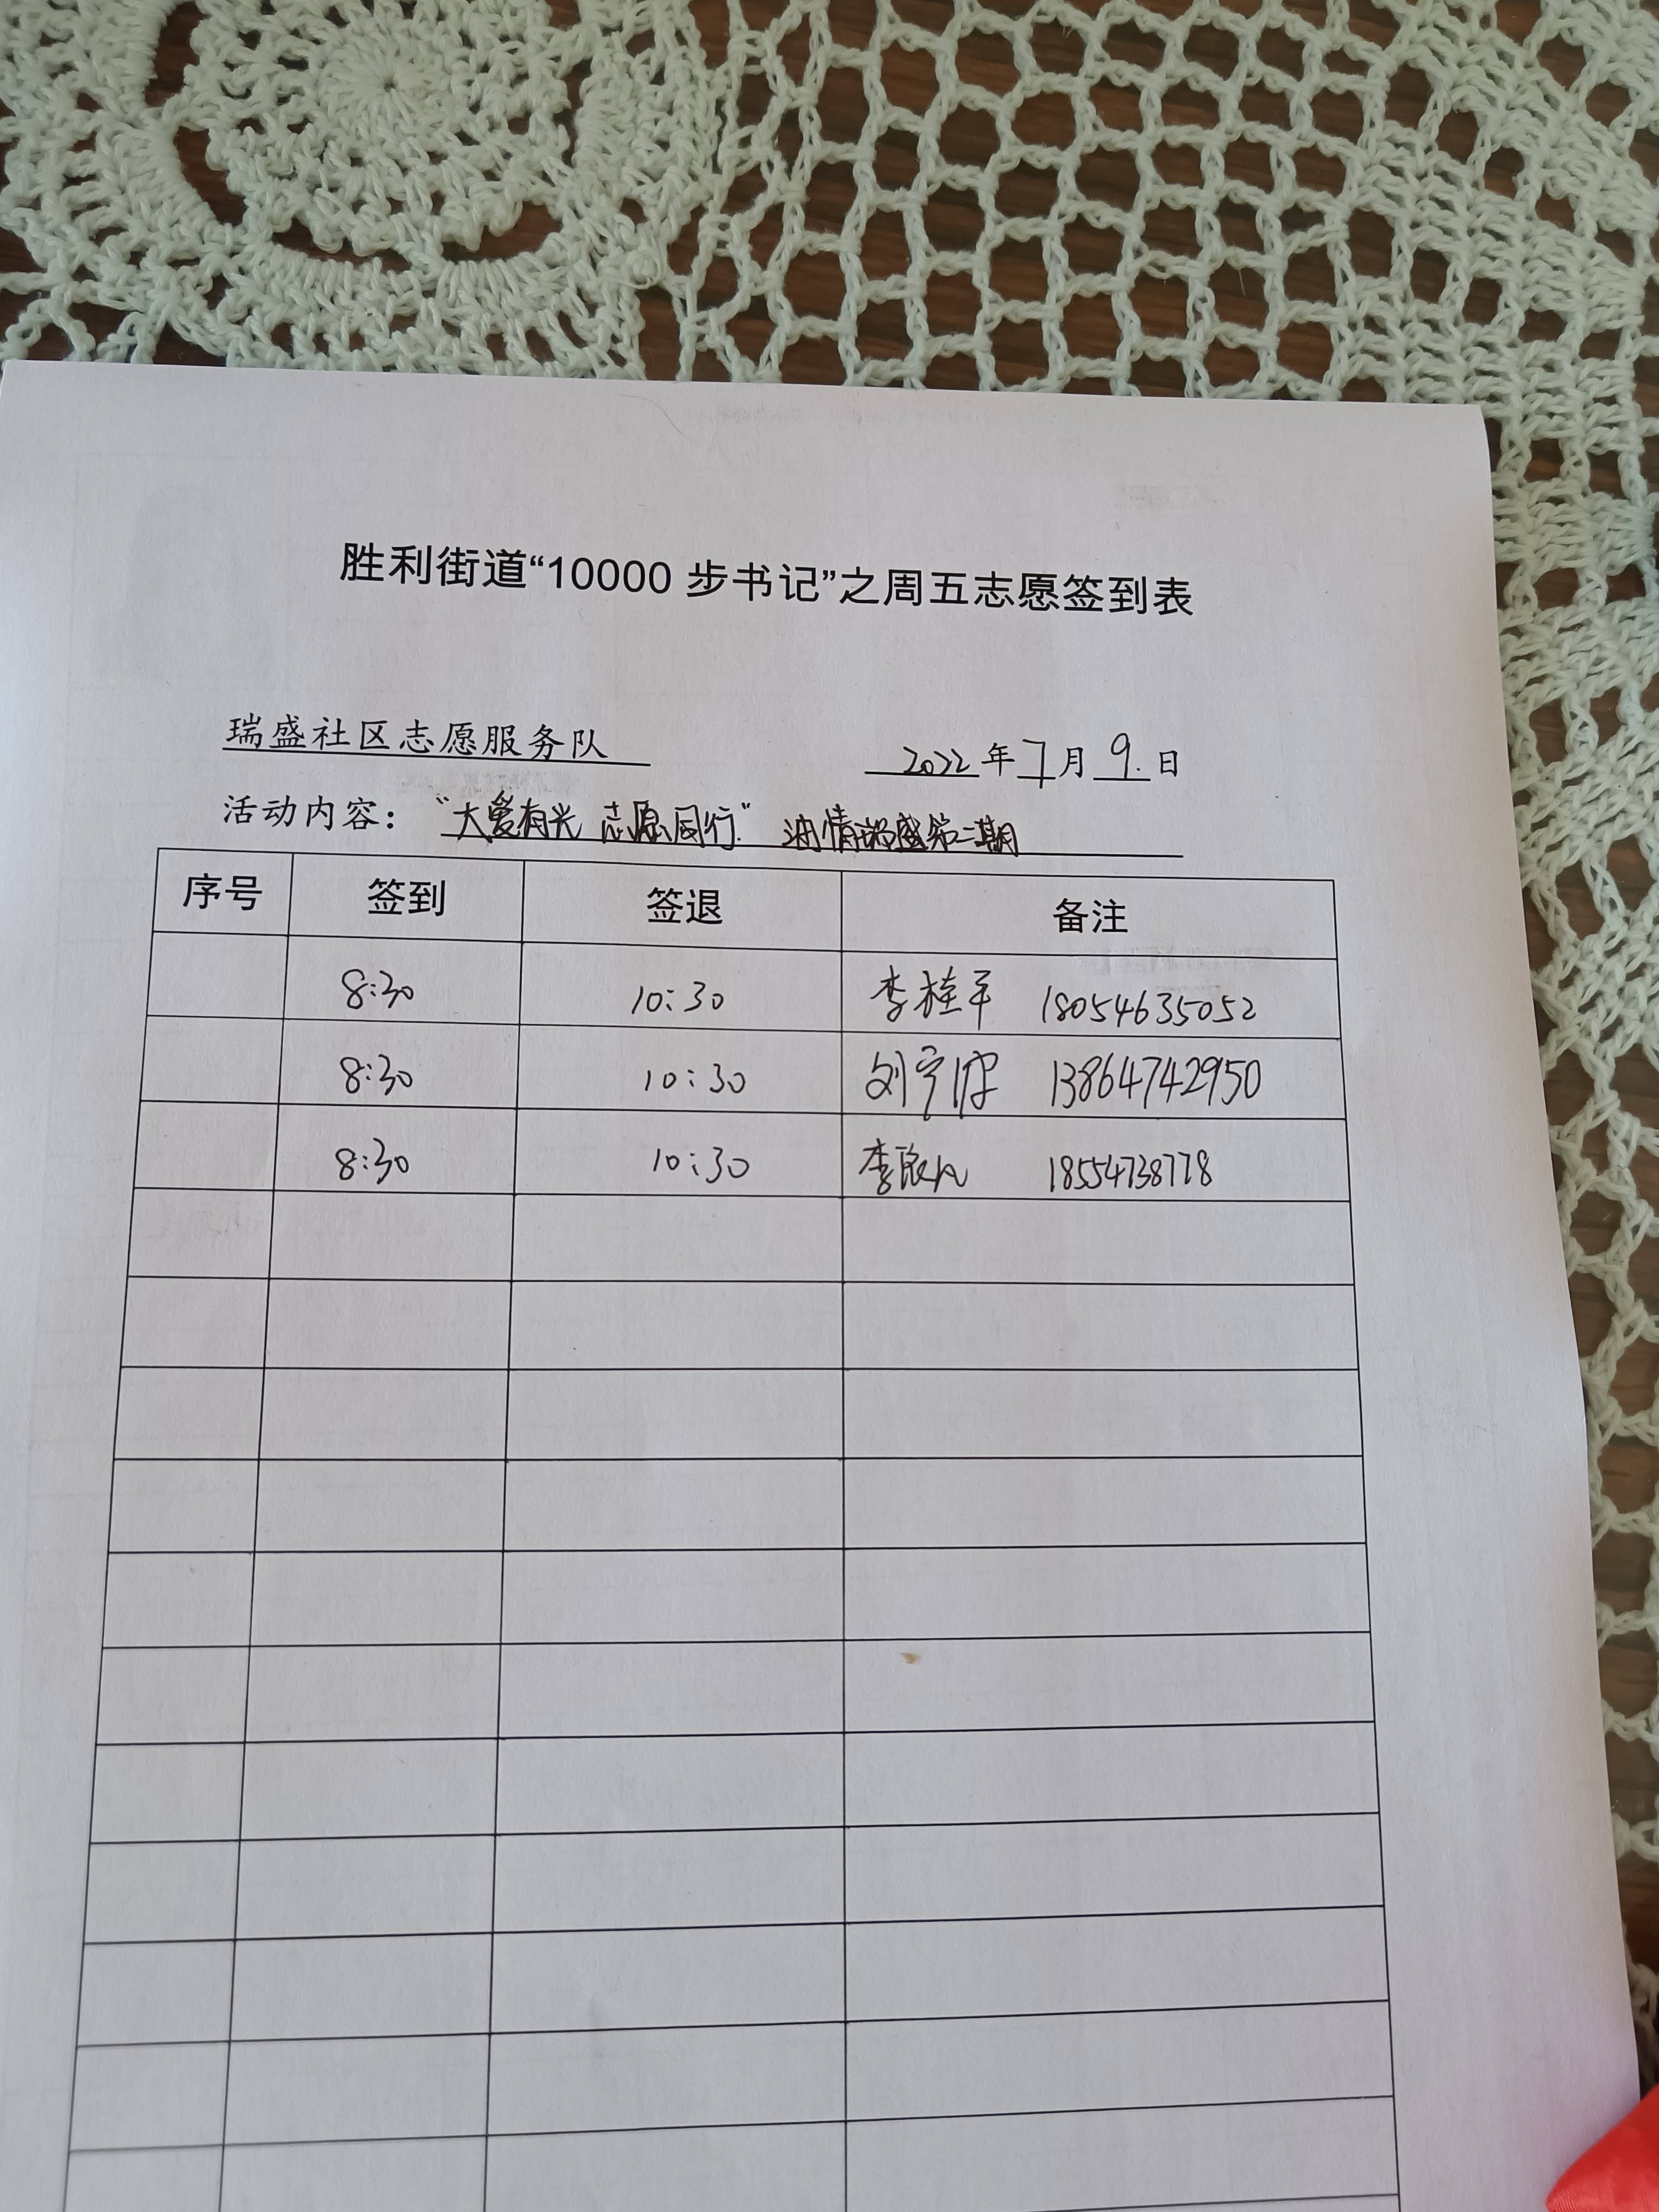 胜利街道“10000 步书记”之周五志愿签到表
瑞盛社区志愿服务队 2022年7月9.日
活动内容：“大爱有光 志愿同行” 油情瑞盛第二期
序号 签到 签退 备注
8:30 10:30 李桂平 18054635052
8:30 10:30 刘宁 13864742950
8:30 10:30 李 18554738778